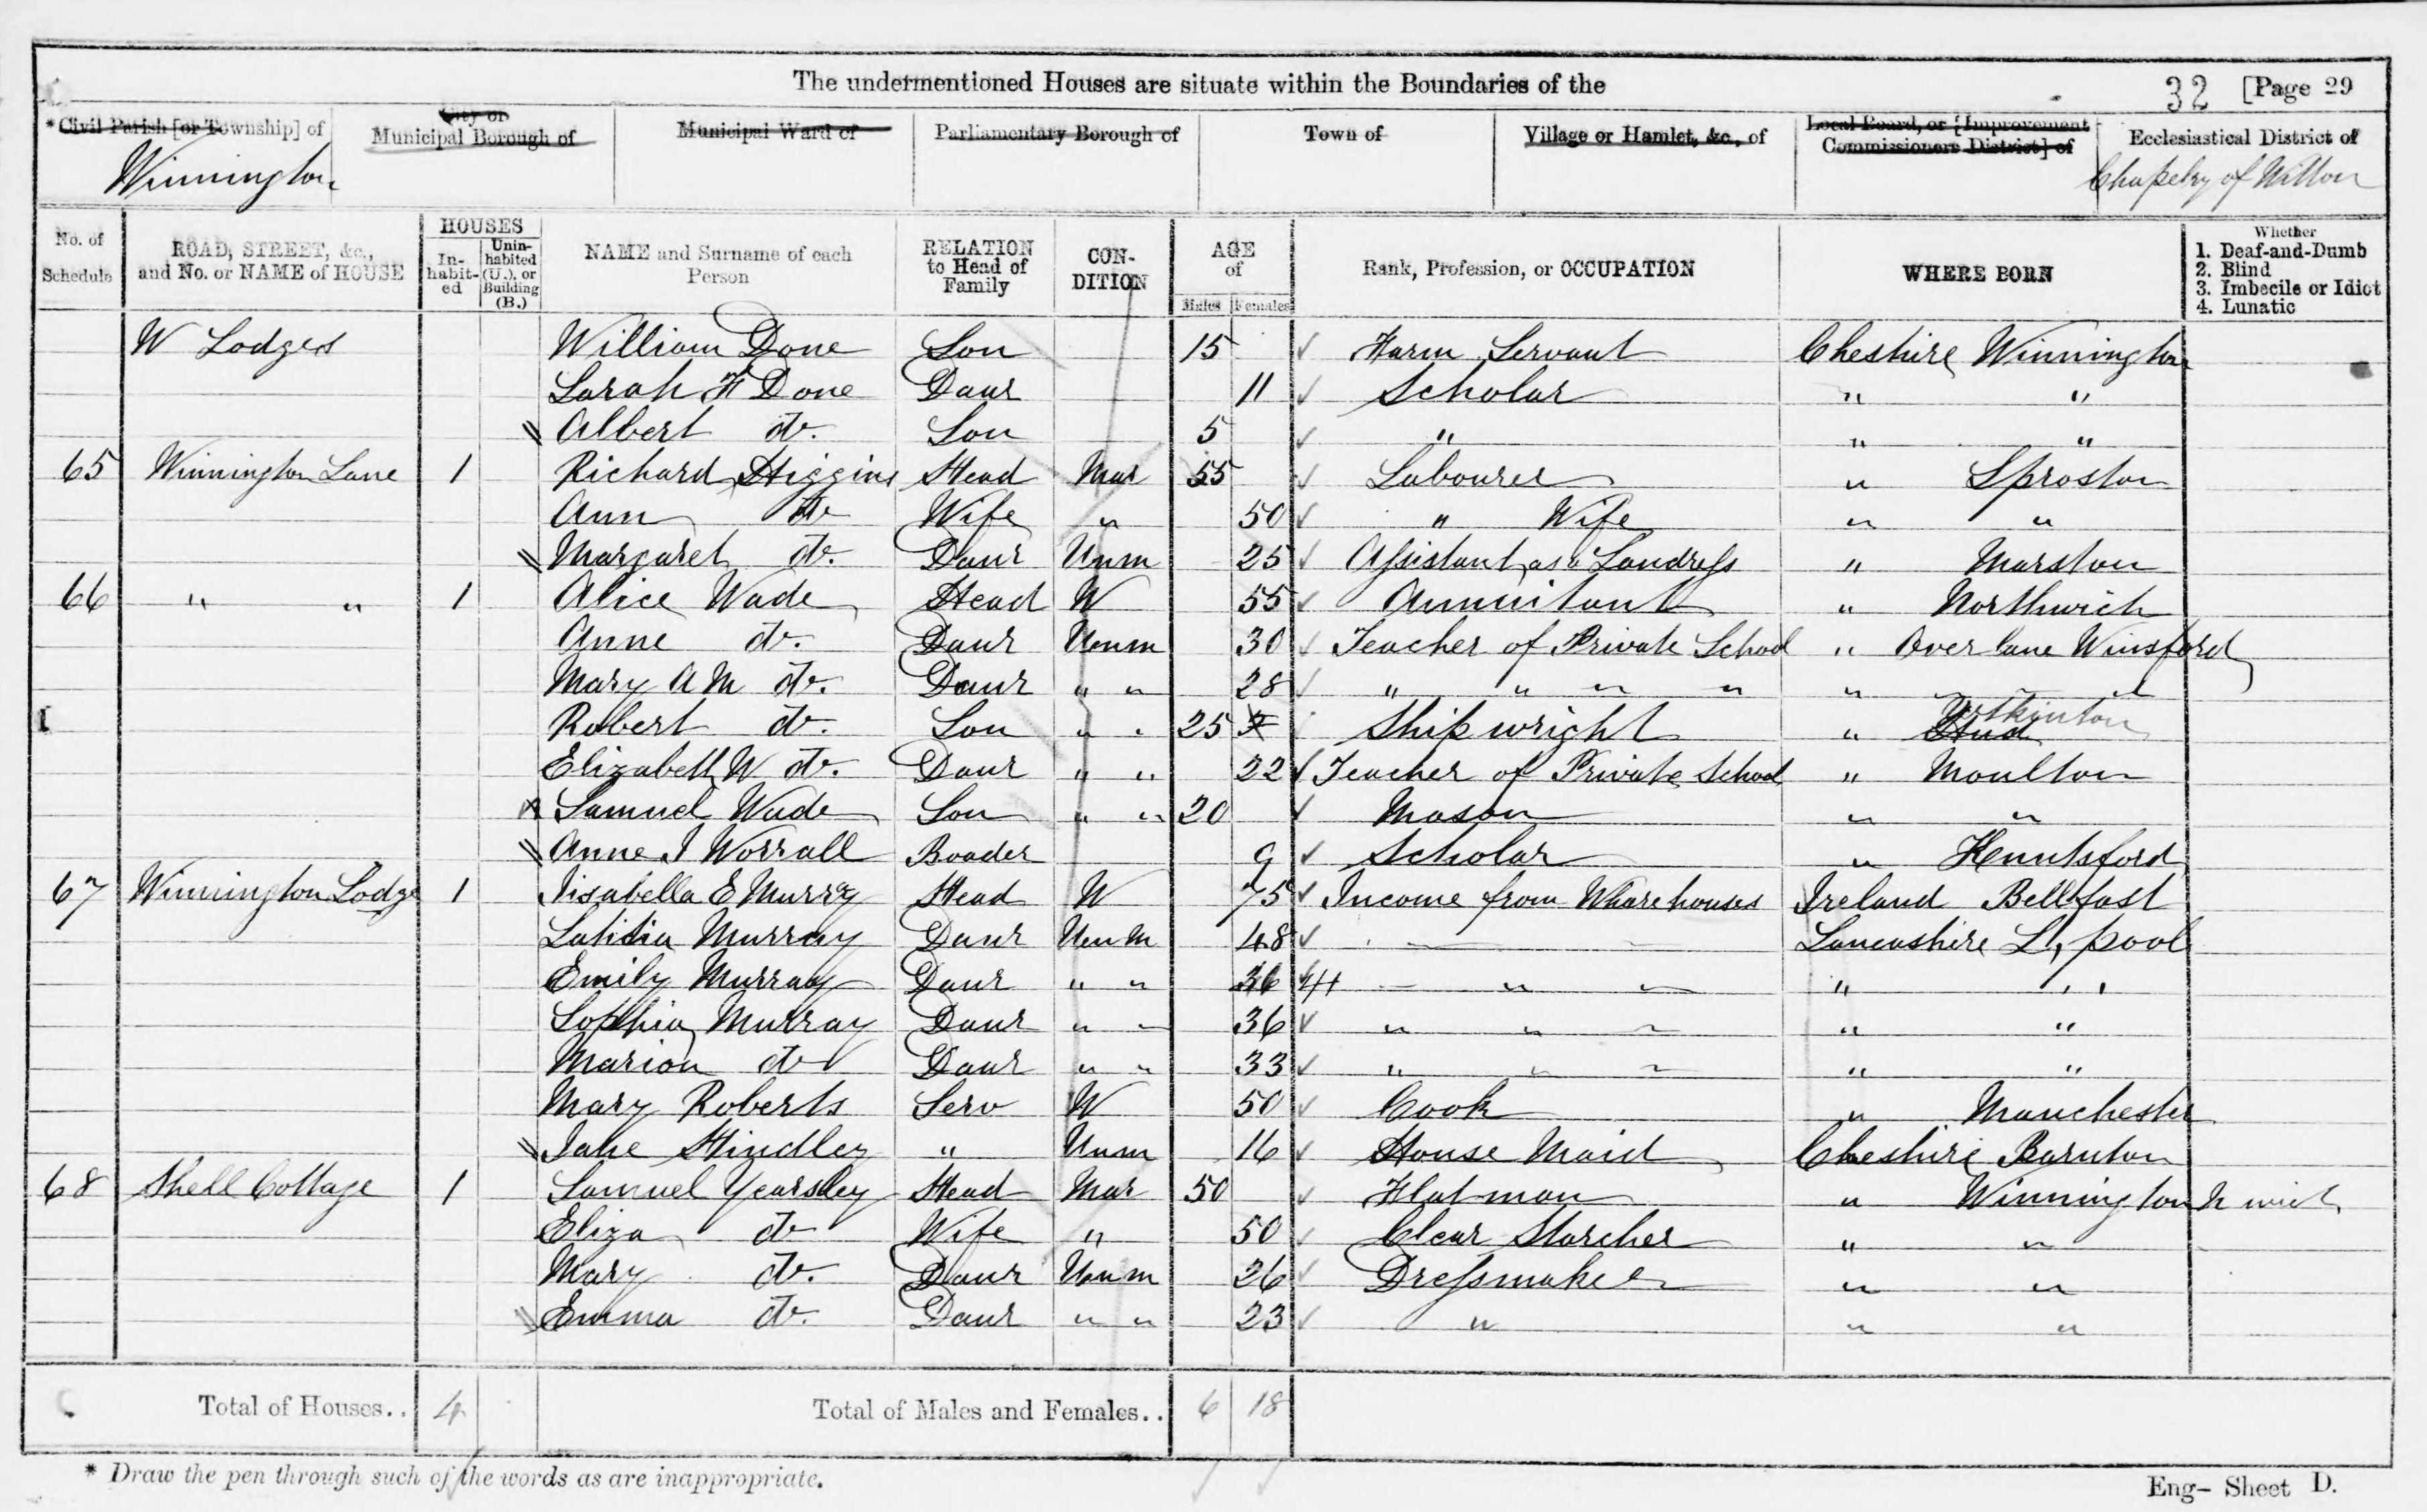 The undermentioned Houses are situate within the Boundaries of the 32 [Page 29
*Civil Parish [or Township] of City or Municipal Borough of Municipal Ward of Parliamentary Borough of Town of Village or Hamlet, &c., of Local Board, or [Improvement Commissioners District] of Ecclesiastical District of
Winnington Chapelry of Witton
No. of Schedule ROAD, STREET, &c., and No. or NAME of HOUSE HOUSES In-habit-ed Unin-habited (U.), or Building (B.) NAME and Surname of each Person RELATION to Head of Family CON-DITION AGE of Males Females Rank, Profession, or OCCUPATION WHERE BORN Whether 1. Deaf-and-Dumb 2. Blind 3. Imbecile or Idiot 4. Lunatic
W Lodges William Done Son 15 Farm Servant Cheshire Winnington
Sarah F Done Daur 11 Scholar " "
Albert do. Son 5 " " "
65 Winnington Lane 1 Richard Higgins Head Mar 55 Labourer " Sproston
Ann do Wife " 50 " Wife " "
Margaret do. Daur Unm 25 Assistant as a Landress " Marston
66 " " 1 Alice Wade Head W 55 Annuitant " Northwich
Anne do. Daur Unm 30 Teacher of Private School " Over lane Winsford
Mary A M do. Daur " " 28 " " " " " " " "
Robert do. Son " " 25 Shipwright "
Elizabeth W do. Daur " " 22 Teacher of Private School " Moulton
Samuel Wade Son " " 20 Mason " "
Anne J Worrall Boader 9 Scholar " Knutsford
67 Winnington Lodge 1 Isabella E Murray Head W 75 Income from Wharehouses Ireland Bellfast
Latitia Murray Daur Unm 48 " " Lancashire L,pool
Emily Murray Daur " " 36 " " " " "
Sophia Murray Daur " " 36 " " " " "
Marion do Daur " " 33 " " " " "
Mary Roberts Serv W 50 Cook " Manchester
Jane Hindley " Unm 16 House Maid Cheshire Barnton
68 Shell Cottage 1 Samuel Yearsley Head Mar 50 Flatman " Winnington N wich
Eliza do Wife " 50 Clear Starcher " "
Mary do. Daur Unm 26 Dressmaker " "
Emma do. Daur " " 23 " " "
Total of Houses.. 4 Total of Males and Females.. 6 18
* Draw the pen through such of the words as are inappropriate.
Eng- Sheet D.